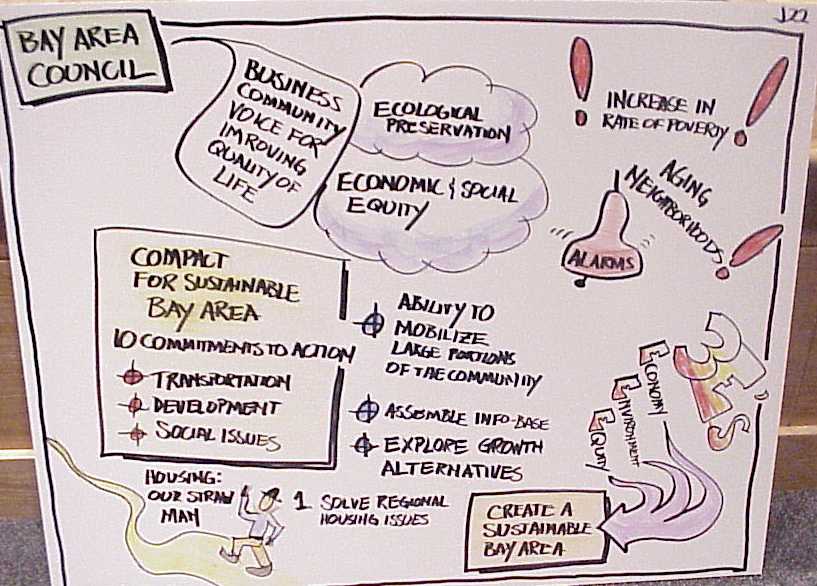 J22
BAY AREA
COUNCIL
BUSINESS
COMMUNITY
VOICE FOR
IMPROVING
QUALITY OF
LIFE
ECOLOGICAL
PRESERVATION
ECONOMIC & SOCIAL
EQUITY
INCREASE IN
RATE OF POVERTY
AGING
NEIGHBORHOODS
ALARMS
COMPACT
FOR SUSTAINABLE
BAY AREA
10 COMMITMENTS TO ACTION
TRANSPORTATION
DEVELOPMENT
SOCIAL ISSUES
ABILITY TO
MOBILIZE
LARGE PORTIONS
OF THE COMMUNITY
ASSEMBLE INFO-BASE
EXPLORE GROWTH
ALTERNATIVES
3E'S
ECONOMY
ENVIRONMENT
EQUITY
HOUSING:
OUR STRAW
MAN
1 SOLVE REGIONAL
HOUSING ISSUES
CREATE A
SUSTAINABLE
BAY AREA